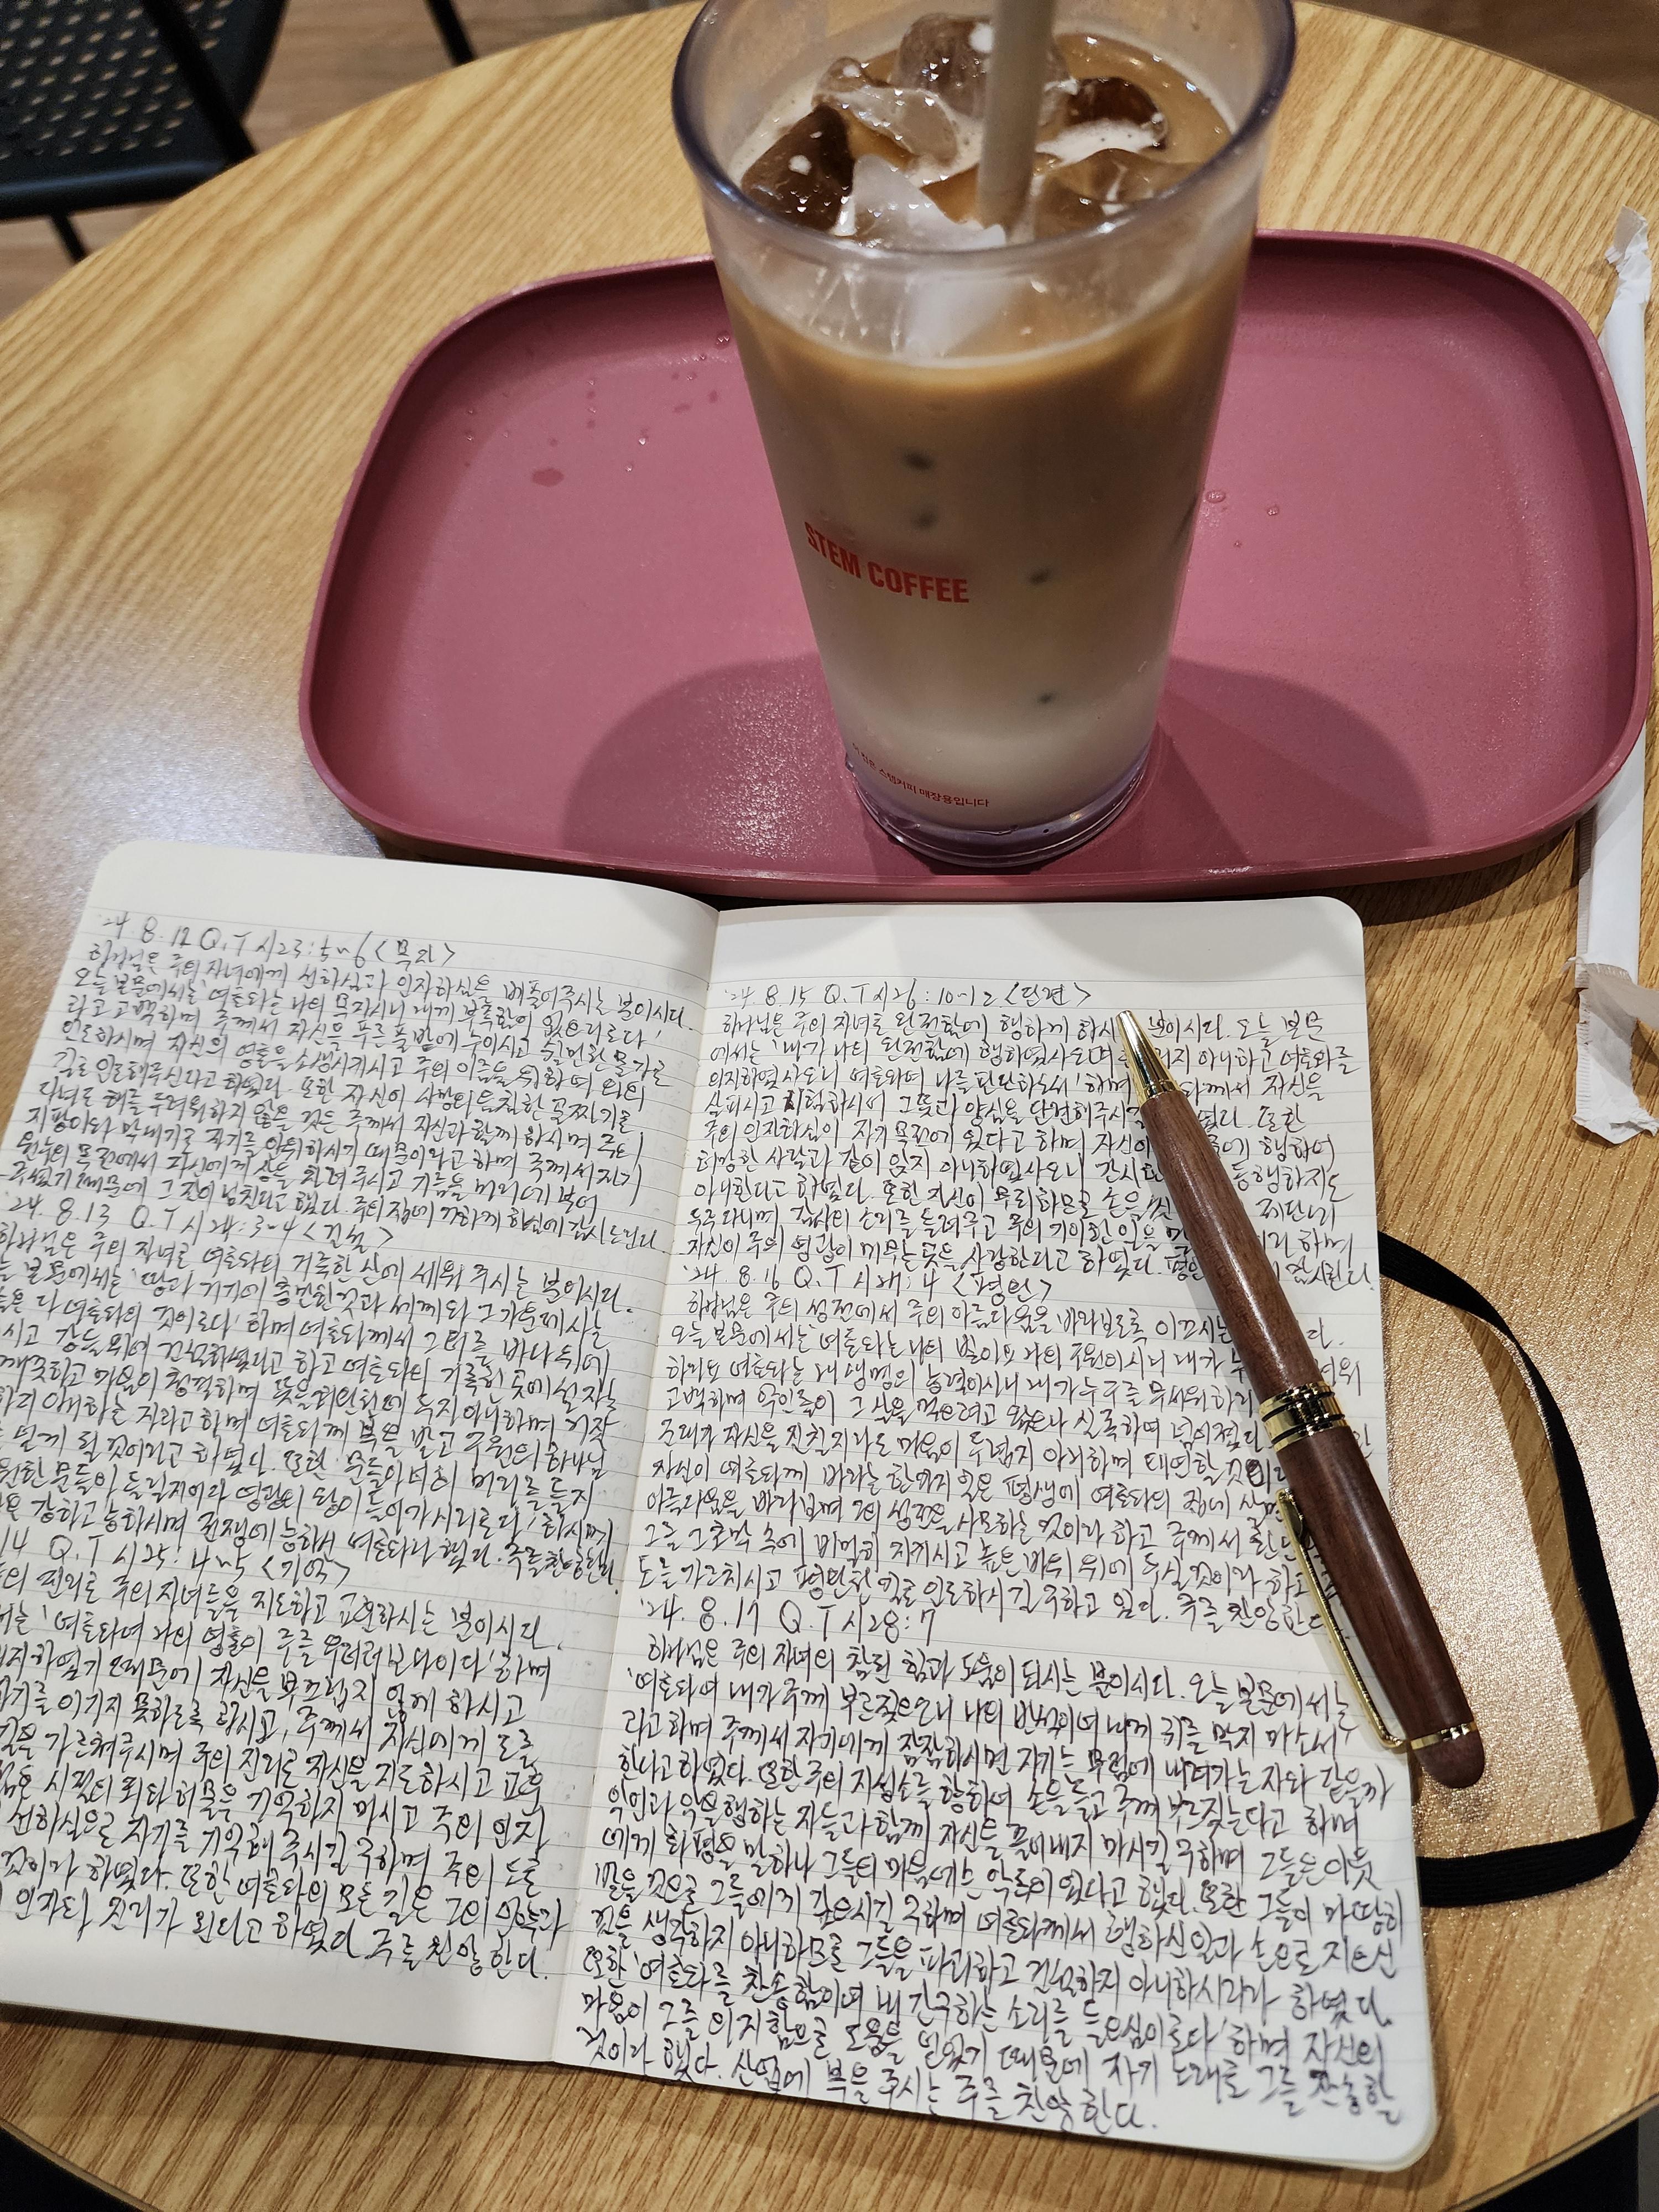 STEM COFFEE
스템커피 매장용입니다
'24. 8. 12 Q.T 시23:5~6 <목자>
하나님은 주의 자녀에게 선하심과 인자하심을 베풀어주시는 분이시다.
오늘 본문에서는 '여호와는 나의 목자시니 내게 부족함이 없으리로다'
라고 고백하며 주께서 자신을 푸른 풀밭에 누이시고 쉴만한 물가로
인도하시며 자신의 영혼을 소생시키시고 주의 이름을 위하여 의의
길로 인도해주신다고 하였다. 또한 자신이 사망의 음침한 골짜기로
다녀도 해를 두려워하지 않을 것은 주께서 자신과 함께 하시며 주의
지팡이와 막대기로 자기를 안위하시기 때문이라고 하며 주께서 자기
원수의 목전에서 자신에게 상을 차려 주시고 기름을 머리에 부어
주셨기 때문에 그 잔이 넘친다고 했다. 주의 집에 거하게 하심에 감사드린다.
'24. 8. 13 Q.T 시24:3~4 <건설>
하나님은 주의 자녀로 여호와의 거룩한 산에 세워 주시는 분이시다.
본문에서는 '땅과 거기에 충만한 것과 세계와 그 가운데 사는
다 여호와의 것이로다' 하며 여호와께서 그 터를 바다 위에
시고 강들 위에 건설하셨다고 하고 여호와의 거룩한 곳에 설 자는
깨끗하고 마음이 청결하며 뜻을 허탄한 데 두지 아니하며 거짓
하지 아니하는 자라고 하며 여호와께 복을 받고 구원의 하나님
얻게 될 것이라고 하였다. 또한 '문들아 너희 머리를 들지
영원한 문들아 들릴지어다 영광의 왕이 들어가시리로다' 하시며
강하고 능하시며 전쟁에 능하신 여호와라 했다. 주를 찬양한다.
14 Q.T 시25:4~5 <기억>
의 진리로 주의 자녀들을 지도하고 교훈하시는 분이시다.
서는 '여호와여 나의 영혼이 주를 우러러보나이다' 하며
의지하였기 때문에 자신을 부끄럽지 않게 하시고
자기를 이기지 못하도록 하시고, 주께서 자신에게 도를
길을 가르쳐주시며 주의 진리로 자신을 지도하시고 교훈
젊은 시절의 죄와 허물을 기억하지 마시고 주의 인자
선하심으로 자기를 기억해 주시길 구하며 주의 도를
것이라 하였다. 또한 여호와의 모든 길은 그의 언약과
인자와 진리가 된다고 하였다. 주를 찬양한다.
'24. 8. 15 Q.T 시26:10~12 <단련>
하나님은 주의 자녀로 완전함에 행하게 하시 분이시다. 오늘 본문
에서는 '내가 나의 완전함에 행하였사오며 지 아니하고 여호와를
의지하였사오니 여호와여 나를 판단하소서' 하며 와께서 자신을
살피시고 시험하시어 그 뜻과 양심을 단련해주시길 였다. 또한
주의 인자하심이 자기 목전에 있다고 하며 자신이 에 행하여
허망한 사람과 같이 앉지 아니하였사오니 간사한 동행하지도
아니한다고 하였다. 또한 자신이 무죄하므로 손을 씻 제단에
두루 다니며 감사의 소리를 들려주고 주의 기이한 일을 리라 하며
자신이 주의 영광이 머무는 곳을 사랑한다고 하였다. 감사한다.
'24. 8. 16 Q.T 시27:4 <평안>
하나님은 주의 성전에서 주의 아름다움을 바라보도록 이끄시는 다.
오늘 본문에서는 '여호와는 나의 빛이요 나의 구원이시니 내가 누 려워
하리요 여호와는 내 생명의 능력이시니 내가 누구를 무서워하리
고백하며 악인들이 그 살을 먹으려고 왔으나 실족하며 넘어졌다
군대가 자신을 진친지라도 마음이 두렵지 아니하며 태연할 것이라
자신이 여호와께 바라는 한 가지 일은 평생에 여호와의 집에 살면
아름다움을 바라보며 그의 성전을 사모하는 것이라 하고 주께서 환난
그를 그 초막 속에 비밀히 지키시고 높은 바위 위에 두실 것이라 하고
도를 가르치시고 평탄한 길로 인도하시길 구하고 있다. 주를 찬양한다.
'24. 8. 17 Q.T 시28:7
하나님은 주의 자녀의 참된 힘과 도움이 되시는 분이시다. 오늘 본문에서는
'여호와여 내가 주께 부르짖으오니 나의 반석이여 내게 귀를 막지 마소서'
라고 하며 주께서 자기에게 잠잠하시면 자기는 무덤에 내려가는 자와 같을까
한다고 하였다. 또한 주의 지성소를 향하여 손을 들고 주께 부르짖는다고 하며
악인과 악을 행하는 자들과 함께 자신을 끌어내지 마시길 구하며 그들은 이웃
에게 화평을 말하나 그들의 마음에는 악독이 있다고 했다. 또한 그들이 마땅히
받을 것으로 그들에게 갚으시길 구하며 여호와께서 행하신 일과 손으로 지으신
것을 생각하지 아니하므로 그들을 파괴하고 건설하지 아니하시리라 하였다.
또한 '여호와를 찬송함이여 내 간구하는 소리를 들으심이로다' 하며 자신의
마음이 그를 의지함으로 도움을 얻었기 때문에 자기 노래로 그를 찬송할
것이라 했다. 산업에 복을 주시는 주를 찬양한다.